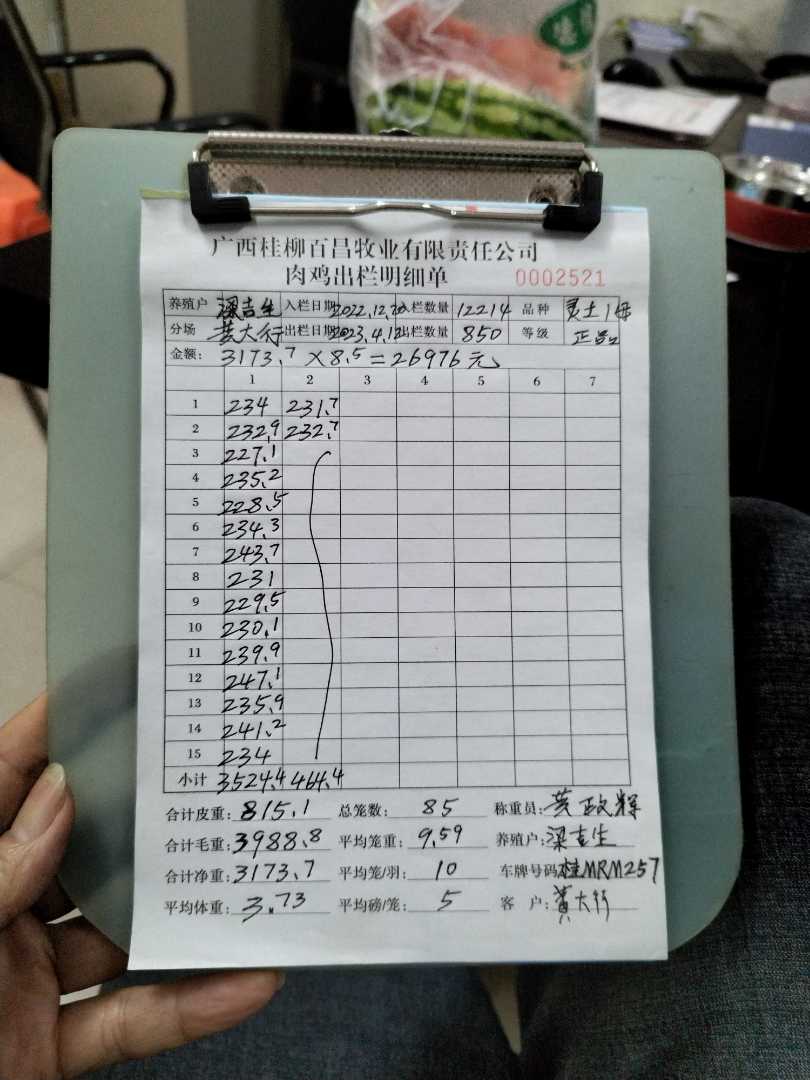 广西桂柳百昌牧业有限责任公司
肉鸡出栏明细单 0002521
养殖户 梁吉生 入栏日期 2022.12.20 入栏数量 12214 品种 灵土1号
分场 黄大行 出栏日期 2023.4.12 出栏数量 850 等级
金额: 3173.7 × 8.5 = 26976元
1 2 3 4 5 6 7
1 234 231.7
2 232.9 232.7
3 227.1
4 235.2
5 228.5
6 234.3
7 243.7
8 231
9 229.5
10 230.1
11 239.9
12 247.1
13 235.9
14 241.2
15 234
小计 3524.4 464.4
合计皮重: 815.1 总笼数: 85 称重员: 黄政辉
合计毛重: 3988.8 平均笼重: 9.59 养殖户: 梁吉生
合计净重: 3173.7 平均笼/羽: 10 车牌号码 桂MRM257
平均体重: 3.73 平均磅/笼: 5 客 户: 黄大行